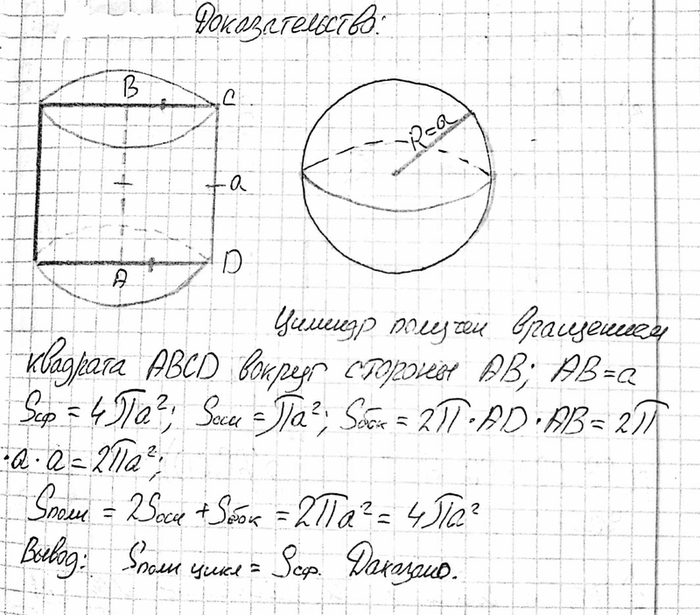 Доказательство:
B
C
R=a
a
D
A
Цилиндр получен вращением
квадрата ABCD вокруг стороны AB; AB=a
Sсф = 4πa²; Sосн = πa²; Sбок = 2π·AD·AB = 2π
·a·a = 2πa²;
Sполн = 2Sосн + Sбок = 2πa² = 4πa²
Вывод: Sполн цил = Sсф. Доказано.